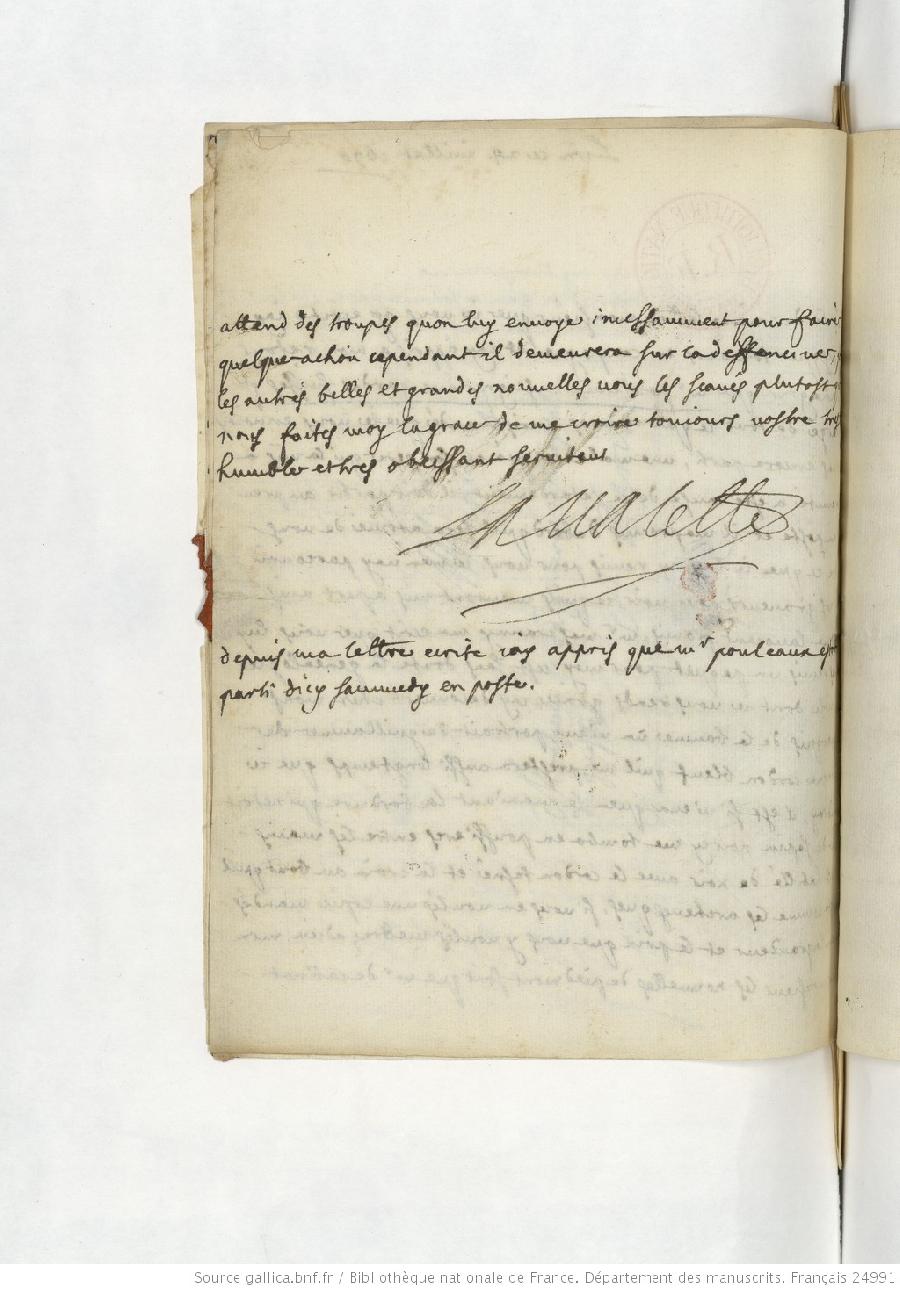 attend des troupes quon luy envoye incessamment pour faire
quelque action cependant il demeurera sur la deffencive
les autres belles et grandes nouvelles vous les scavés plutost
nous faites moy la grace de me croire tousiours vostre tres
humble et tres obeissant serviteur
La Valette
depuis ma lettre ecrite iay appris que mr pouleaux est
parti dicy sammedy en poste.
Source gallica.bnf.fr / Bibliothèque nationale de France. Département des manuscrits. Français 24991